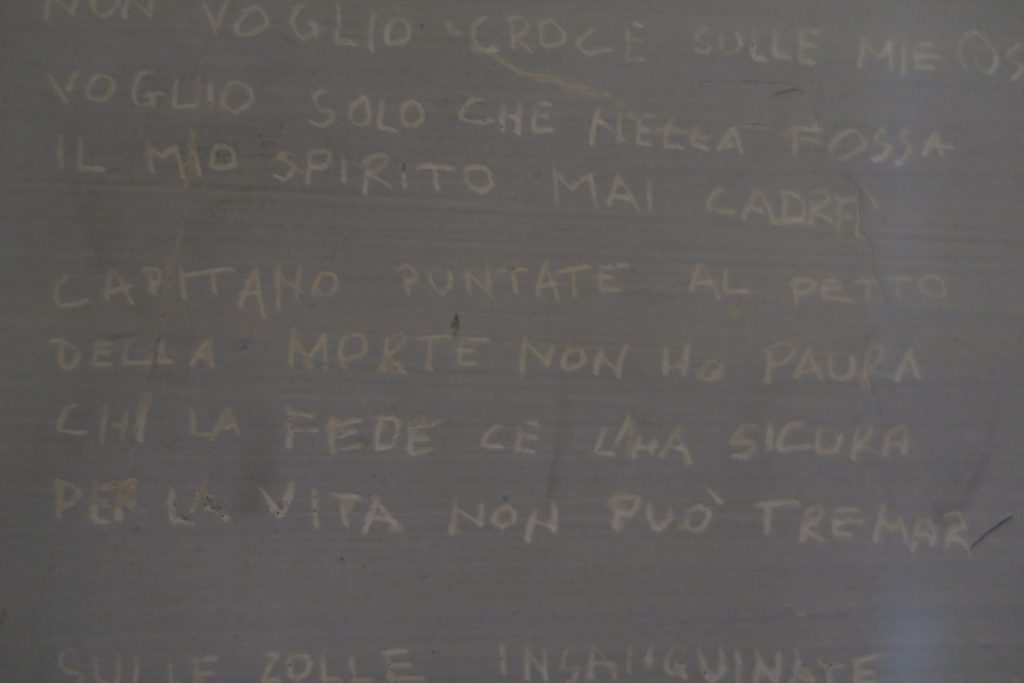 NON VOGLIO CROCE SULLE MIE OS
VOGLIO SOLO CHE NELLA FOSSA
IL MIO SPIRITO MAI CADRA'
CAPITANO PUNTATE AL PETTO
DELLA MORTE NON HO PAURA
CHI LA FEDE CE L'HA SICURA
PER LA VITA NON PUÒ TREMAR
SULLE ZOLLE INSANGUINATE